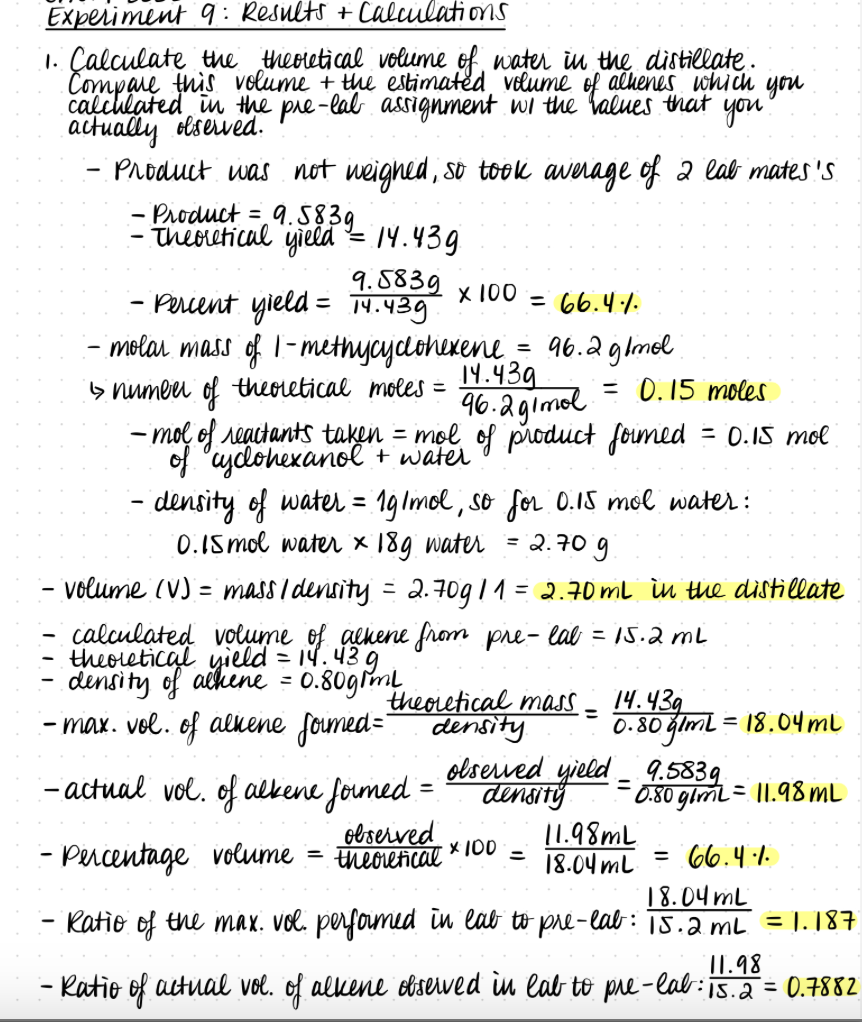 Experiment 9: Results + Calculations
1. Calculate the theoretical volume of water in the distillate.
Compare this volume + the estimated volume of alkenes which you
calculated in the pre-lab assignment w/ the values that you
actually observed.
- Product was not weighed, so took average of 2 lab mates's
- Product = 9.583g
- Theoretical yield = 14.43g
- Percent yield = 9.583g / 14.43g × 100 = 66.4%
- molar mass of 1-methycyclohexene = 96.2 g/mol
↳ number of theoretical moles = 14.43g / 96.2g/mol = 0.15 moles
- mol of reactants taken = mol of product formed = 0.15 mol
of cyclohexanol + water
- density of water = 1g/mol, so for 0.15 mol water:
0.15mol water × 18g water = 2.70 g
- volume (V) = mass/density = 2.70g / 1 = 2.70mL in the distillate
- calculated volume of alkene from pre-lab = 15.2 mL
- theoretical yield = 14.43 g
- density of alkene = 0.80g/mL
- max. vol. of alkene formed = theoretical mass / density = 14.43g / 0.80 g/mL = 18.04mL
- actual vol. of alkene formed = observed yield / density = 9.583g / 0.80 g/mL = 11.98mL
- Percentage volume = observed / theoretical × 100 = 11.98mL / 18.04mL = 66.4%
- Ratio of the max. vol. performed in lab to pre-lab: 18.04mL / 15.2 mL = 1.187
- Ratio of actual vol. of alkene observed in lab to pre-lab: 11.98 / 15.2 = 0.7882